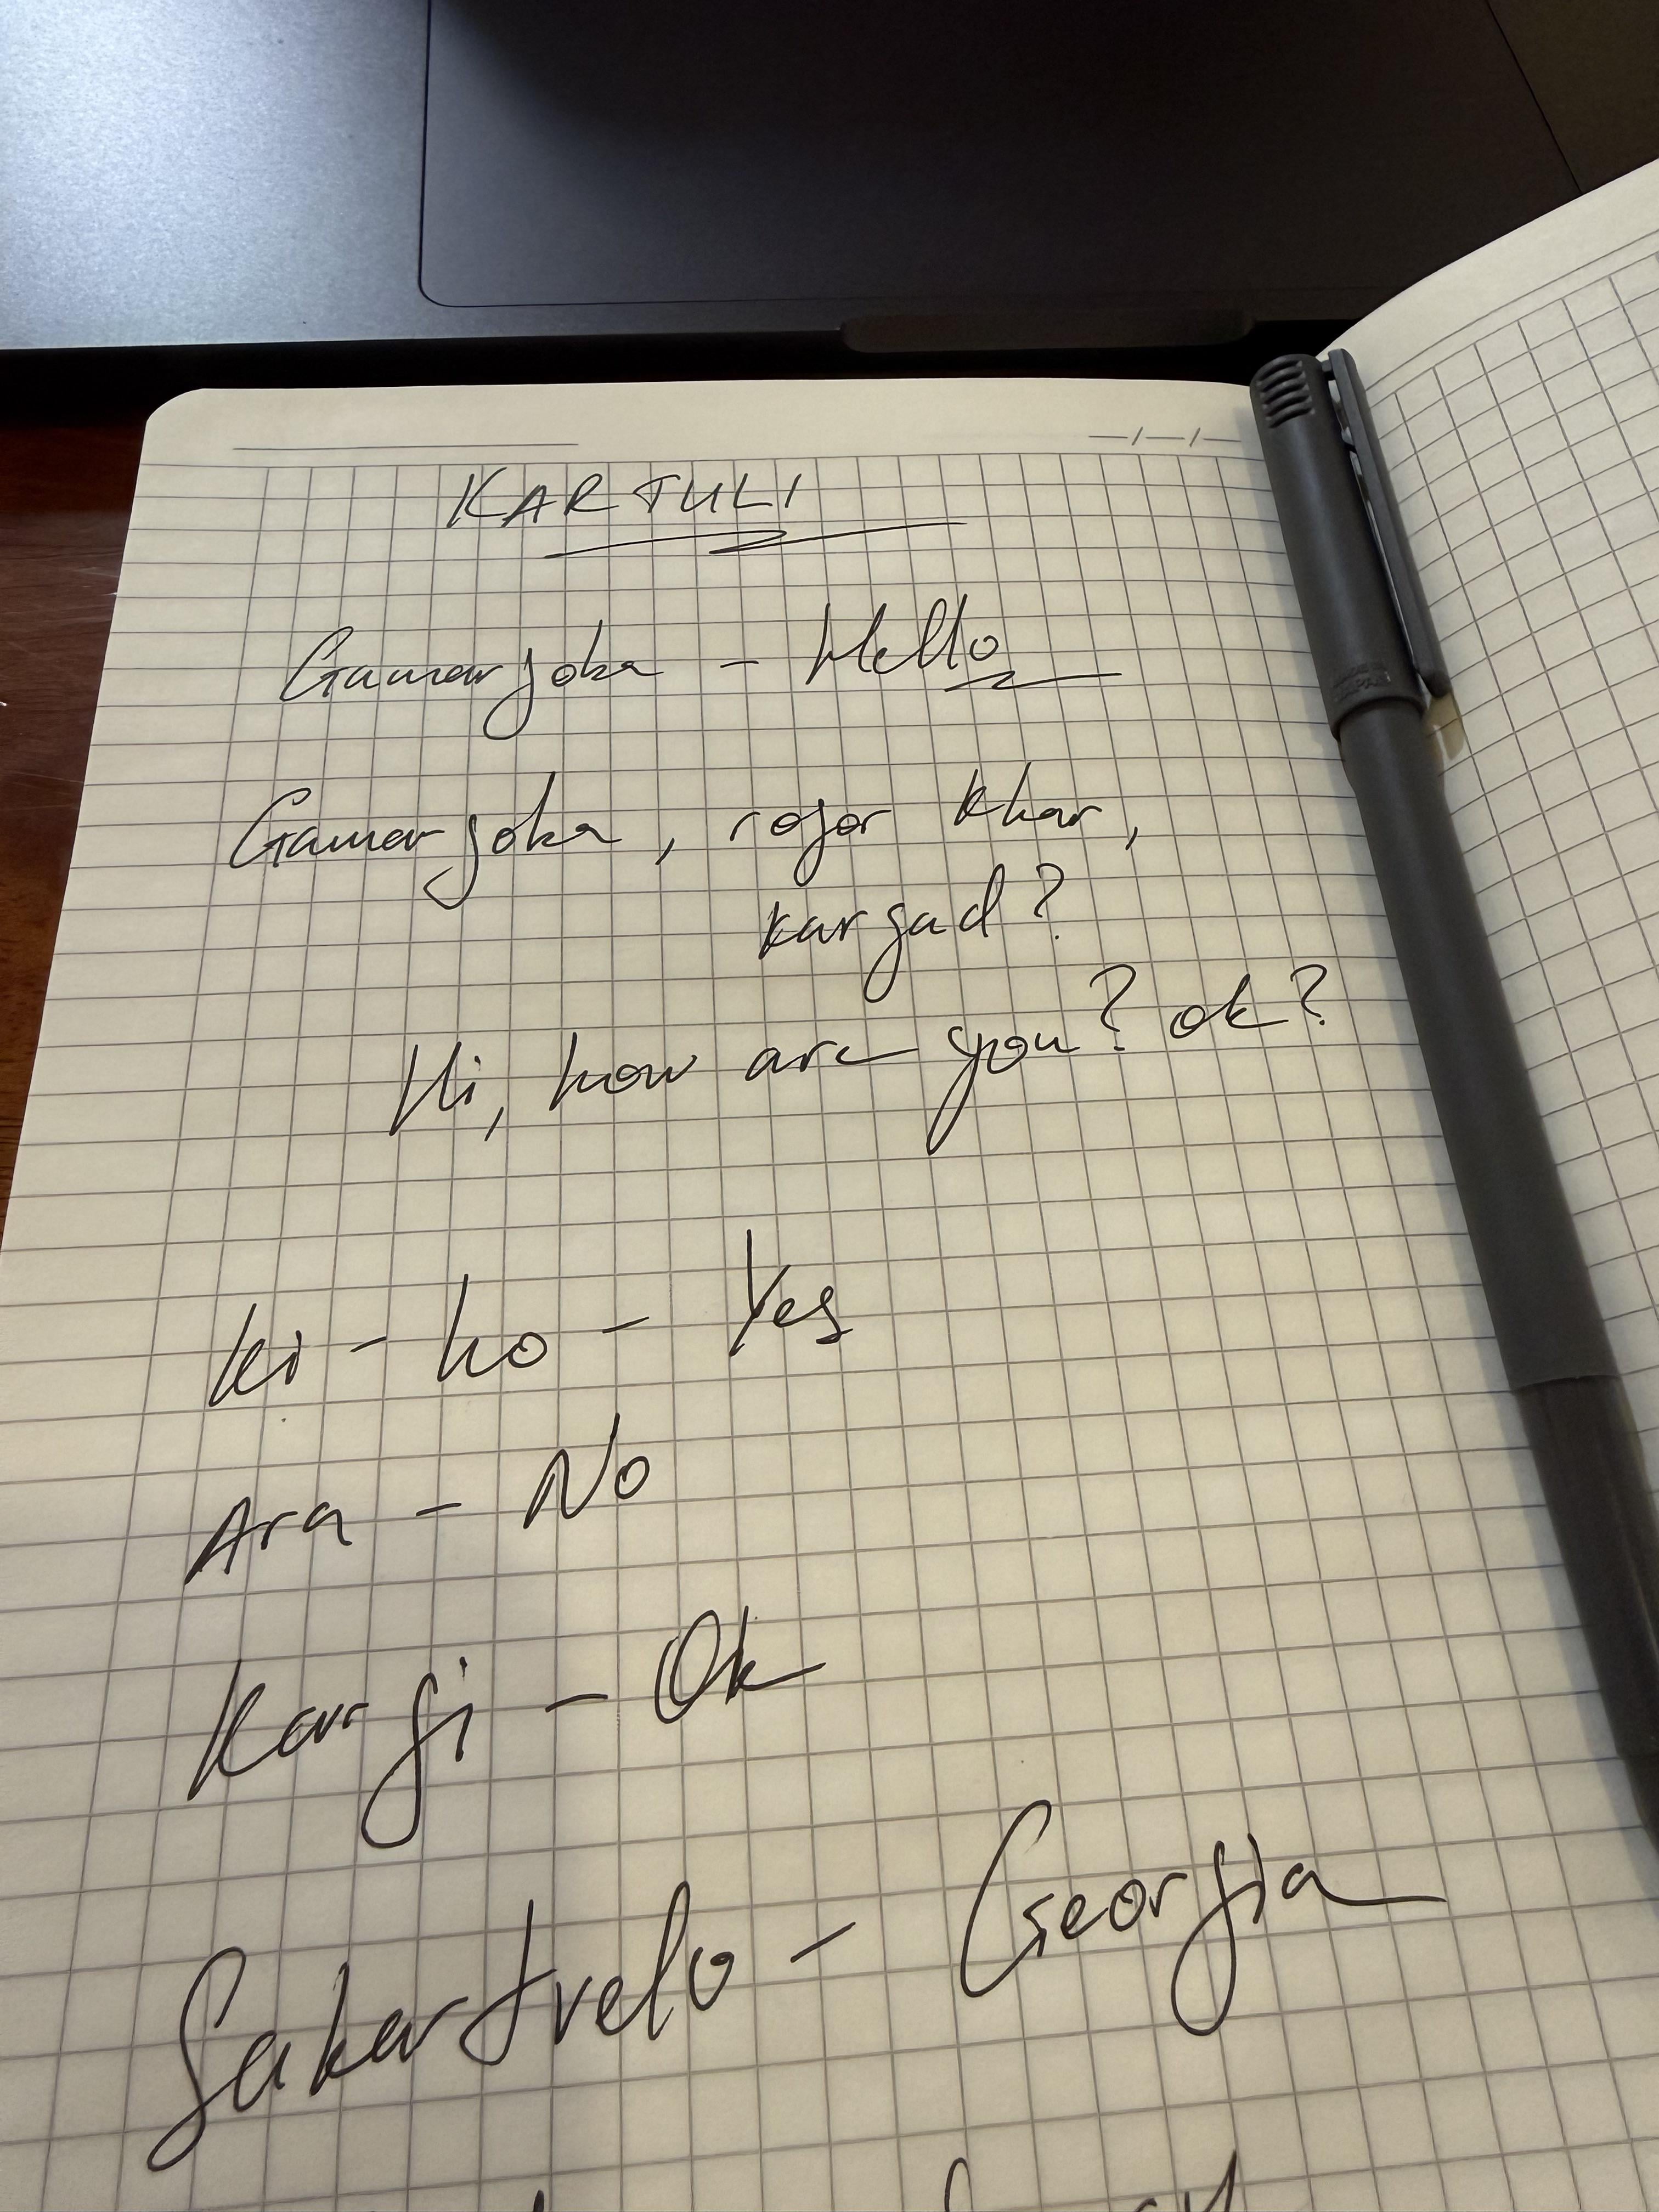 KARTULI
Gamarjoba - Hello
Gamarjoba, rogor khar,
kargad?
Hi, how are you? ok?
Ki - ho - Yes
Ara - No
Kargi - Ok
Sakartvelo - Georgia